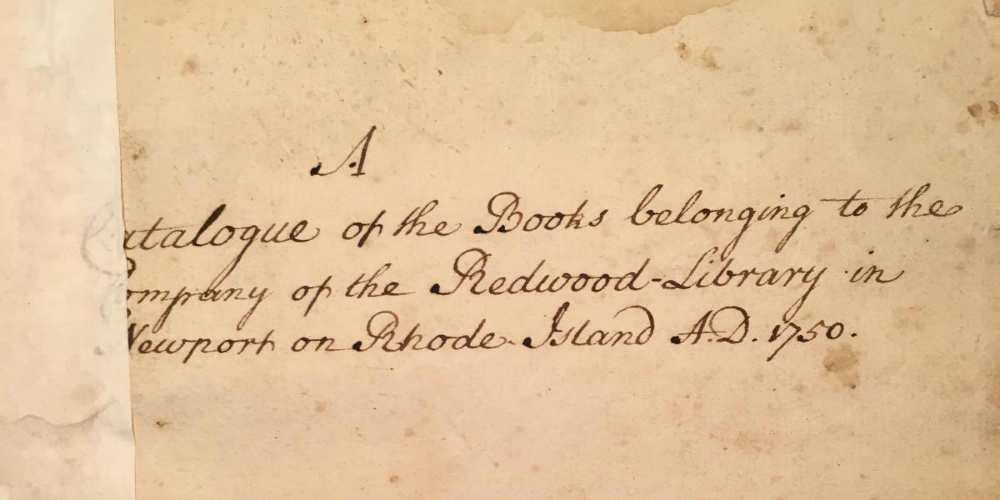 A
Catalogue of the Books belonging to the
Company of the Redwood-Library in
Newport on Rhode-Island A.D. 1750.